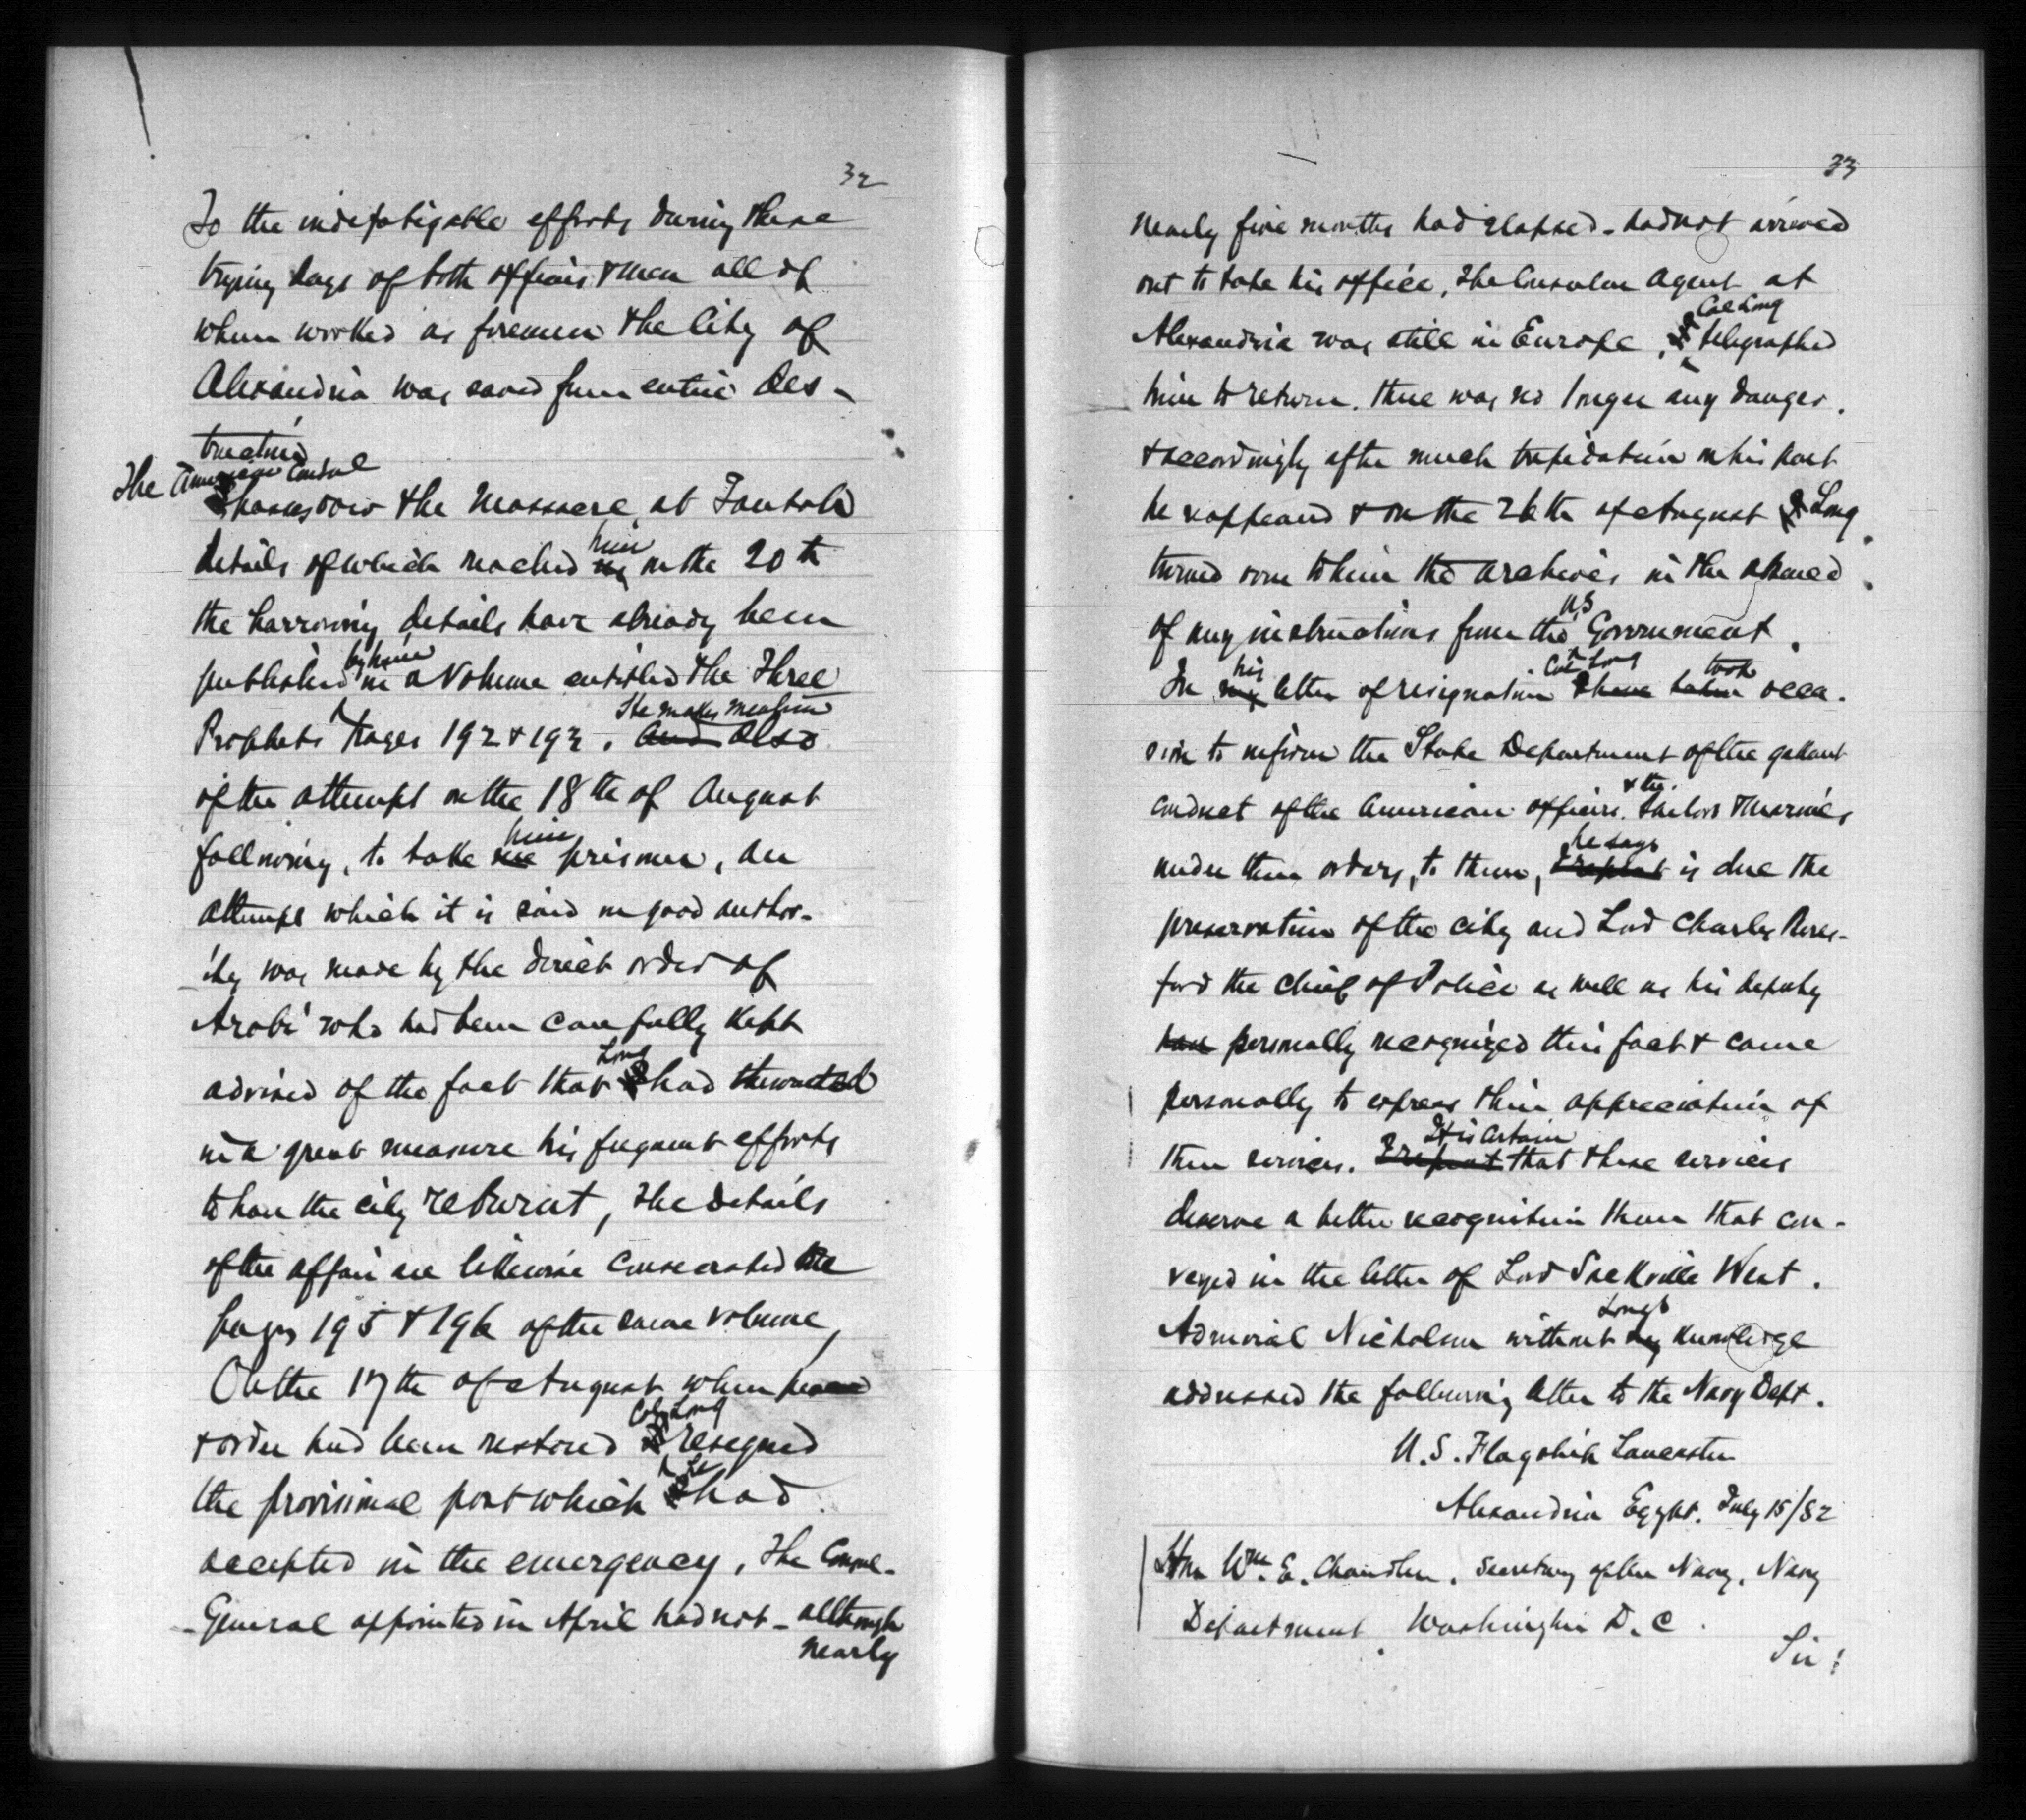 32
To the indefatigable efforts during these
trying days of both officers & men all of
whom worked as firemen the City of
Alexandria was saved from entire des-
truction
The American Consul
the Massacre at Tantah
details of which reached him on the 20th
the harrowing details have already been
published by him in a Volume entitled the Three
Prophets pages 192 & 193. He makes mention and also
of the attempt on the 18th of August
following, to take me him prisoner, an
attempt which it is said on good author-
ity was made by the direct order of
Arabi who had been carefully kept
advised of the fact that I Long had thwarted
in a great measure his frequent efforts
to have the city reburnt, The details
of the affair are likewise consecrated the
pages 195 & 196 of the same volume,
On the 17th of August when peace
& order had been restored I Col Long resigned
the provisional post which I he had
accepted in the emergency, The Consul-
General appointed in April had not - although
nearly
33
nearly five months had elapsed - had not arrived
out to take his office, The Consular Agent at
Alexandria was still in Europe, I Col Long telegraphed
him to return. there was no longer any danger,
& accordingly after much trepidation on his part
he reappeared & on the 26th of August I Long
turned over to him the archives in the absence
of any instructions from the US Government.
In my his letter of resignation Col Long I have taken took occa-
sion to inform the State Department of the gallant
conduct of the American officers. & the Sailors & Marines
under their orders, to them, I repeat he says is due the
preservation of the city and Lord Charles Beres-
ford the Chief of Police as well as his deputy
have personally recognized this fact & came
personally to express their appreciation of
their services. I repeat It is certain that these services
deserve a better recognition than that con-
veyed in the letter of Lord Sackville West.
Admiral Nicholson without my Long's knowledge
addressed the following letter to the Navy Dept.
U.S. Flagship Lancaster
Alexandria Egypt. July 15/82
Hon Wm. E. Chandler. Secretary of the Navy, Navy
Department, Washington D.C.
Sir: